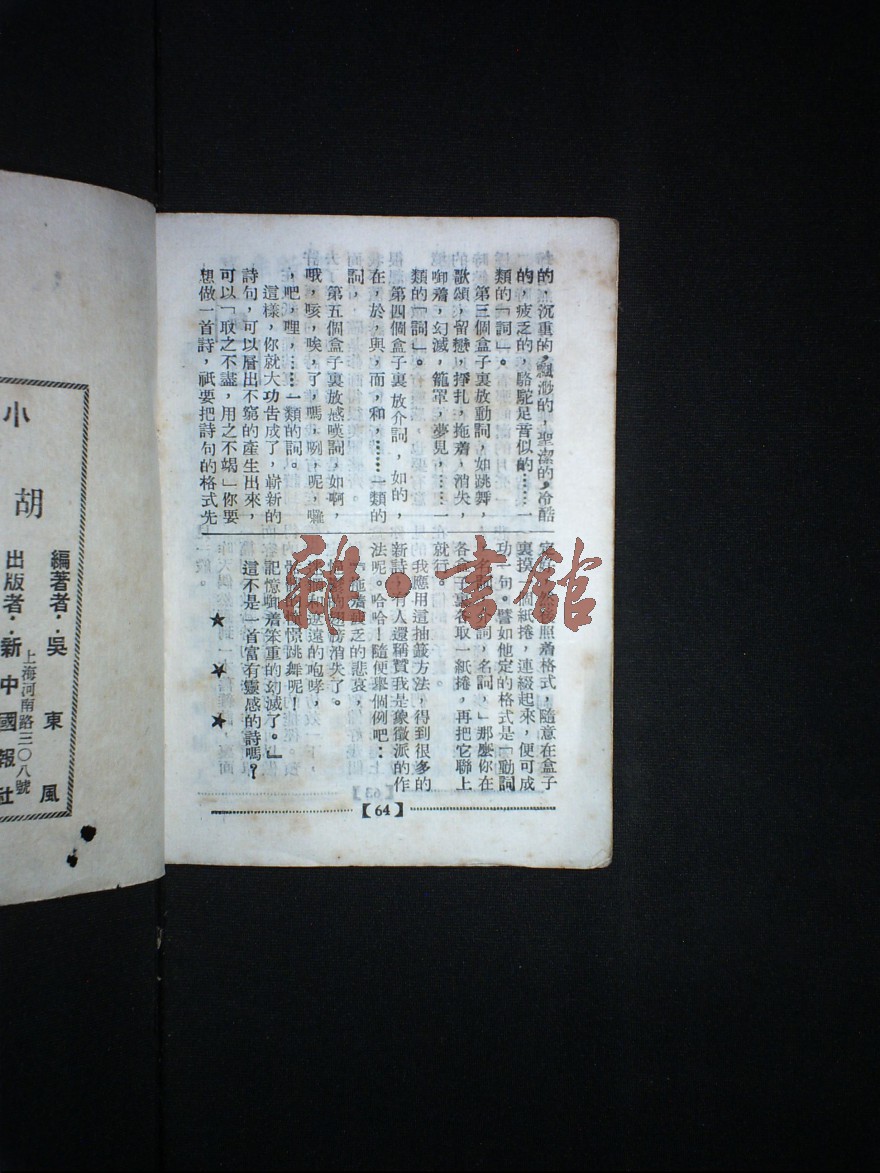 的,沉重的,飄渺的,聖潔的,冷酷
的,疲乏的,駱駝足音似的……一
類的「詞」。
第三個盒子裏放動詞,如跳舞,
歌頌,留戀,掙扎,拖着,消失,
啣着,幻滅,籠罩,夢見,……一
類的「詞」。
第四個盒子裏放介詞,如的,
在,於,與,而,和,……一類的
詞,
第五個盒子裏放感嘆詞,如啊,
哦,咳,唉,了,嗎,咧,呢,囉
,吧,哩,……一類的詞。
這樣,你就大功告成了,嶄新的
詩句,可以層出不窮的產生出來,
可以「取之不盡,用之不竭」你要
想做一首詩,祇要把詩句的格式先
定好,照着格式,隨意在盒子
裏摸個紙捲,連綴起來,便可成
功一句。譬如他定的格式是「動詞
,名詞,介詞,名詞,」那麼你在
各裏各取一紙捲,再把它聯上
就行
我應用這抽籤方法,得到很多的
新詩,有人還稱贊我是象徵派的作
法呢。哈哈!隨便舉個例吧:
「拖着疲乏的悲哀,
的翅膀消失了。
遼遠的咆哮,
的憧憬跳舞呢!
記憶啣着笨重的幻滅了。」
這不是一首富有靈感的詩嗎?
★ ★ ★
【64】
雜·書館
小
胡
編著者:吳東風
出版者:新中國報社
上海河南路三〇八號